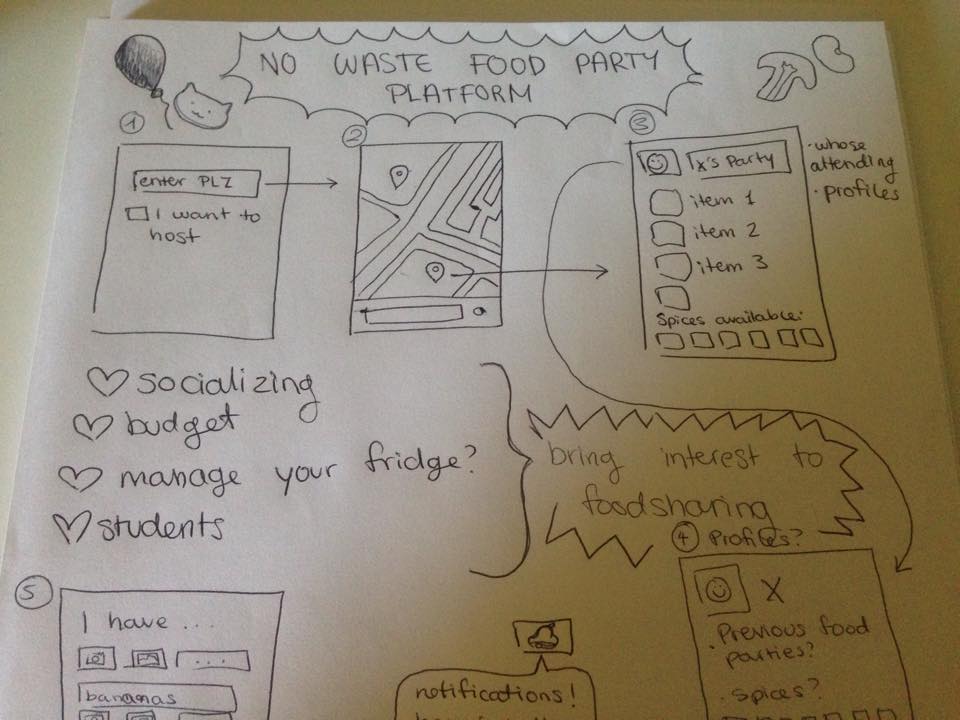 NO WASTE FOOD PARTY
PLATFORM
1
enter PLZ
I want to
host
2
3
X's Party
item 1
item 2
item 3
Spices available:
· whose
attending
· profiles
socializing
budget
manage your fridge?
students
bring interest to
foodsharing
4 Profiles?
X
· Previous food
parties?
· Spices?
5
I have ...
...
bananas
notifications!